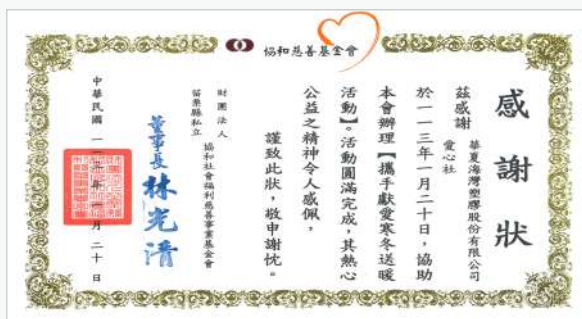 協和慈善基金會
感謝狀
茲感謝
華夏海灣塑膠股份有限公司
愛心社
於一一三年一月二十日，協助
本會辦理【攜手獻愛寒冬送暖
活動】。活動圓滿完成，其熱心
公益之精神令人感佩，
謹致此狀，敬申謝忱。
財團法人
苗栗縣私立
協和社會福利慈善事業基金會
董事長 林光清
中華民國一一三年一月二十日